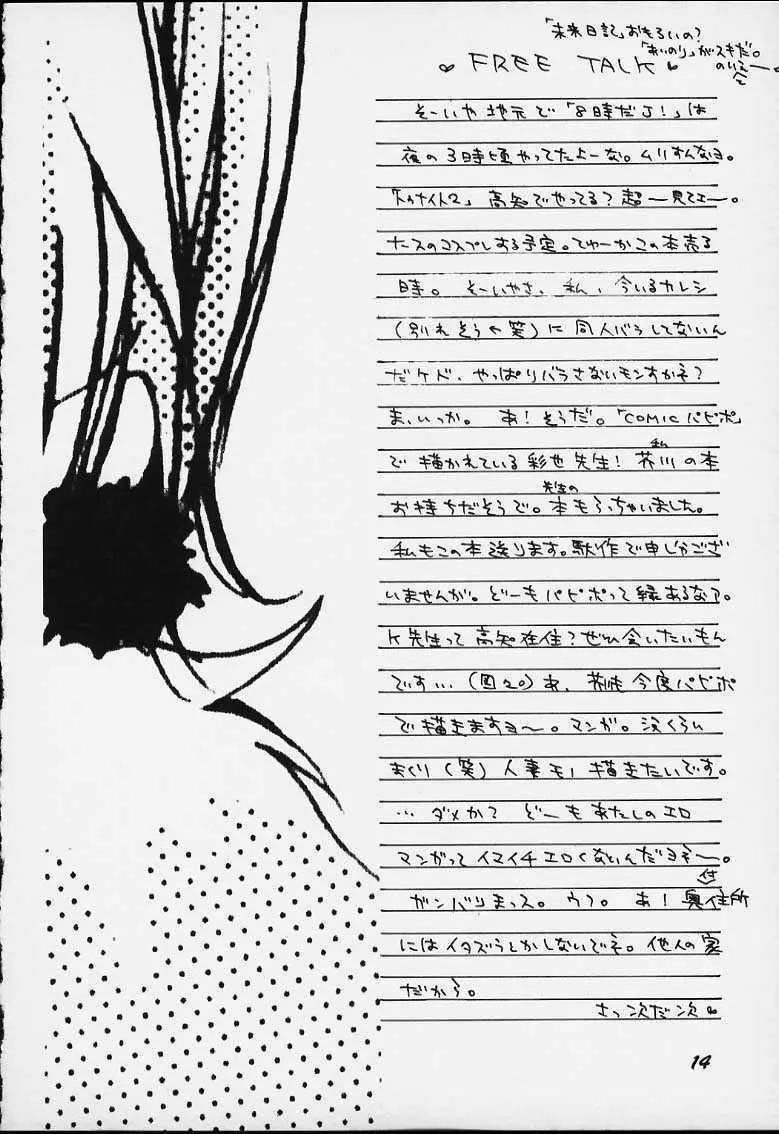 「未来日記」おもろいの?
「あいのり」がスキだ。
のりえー。
FREE TALK
そーいや地元で「8時だJ!」は
夜の3時頃やってたよーな。ムリすんなョ。
「トゥナイト2」高知でやってる?超ー見てェー。
ナースのコスプレする予定。てゆーかこの本売る
時。そーいやさ、私、今いるカレシ
(別れそう←笑)に同人バラしてないん
だケド、やっぱりバラさないモンすかネ?
ま、いっか。あ!そうだ。「COMICパピポ」
で描かれている彩也先生!私芥川の本
お持ちだそうで。先生の本もらっちゃいました。
私もこの本送ります。駄作で申しわけござ
いませんが。どーもパピポって縁あるなァ。
K先生って高知在住?ぜひ会いたいもん
です…(図20)あ、芥川も今度パピポ
で描きますョ〜。マンガ。涙くらい
まくり(笑)人妻モノ描きたいです。
…ダメか?どーもあたしのエロ
マンガってイマイチエロくないんだヨネー。
ガンバリまっス。ウフ。あ!奥付住所
にはイタズラとかしないでネ。他人の家
だから。
さっ次だ次
14